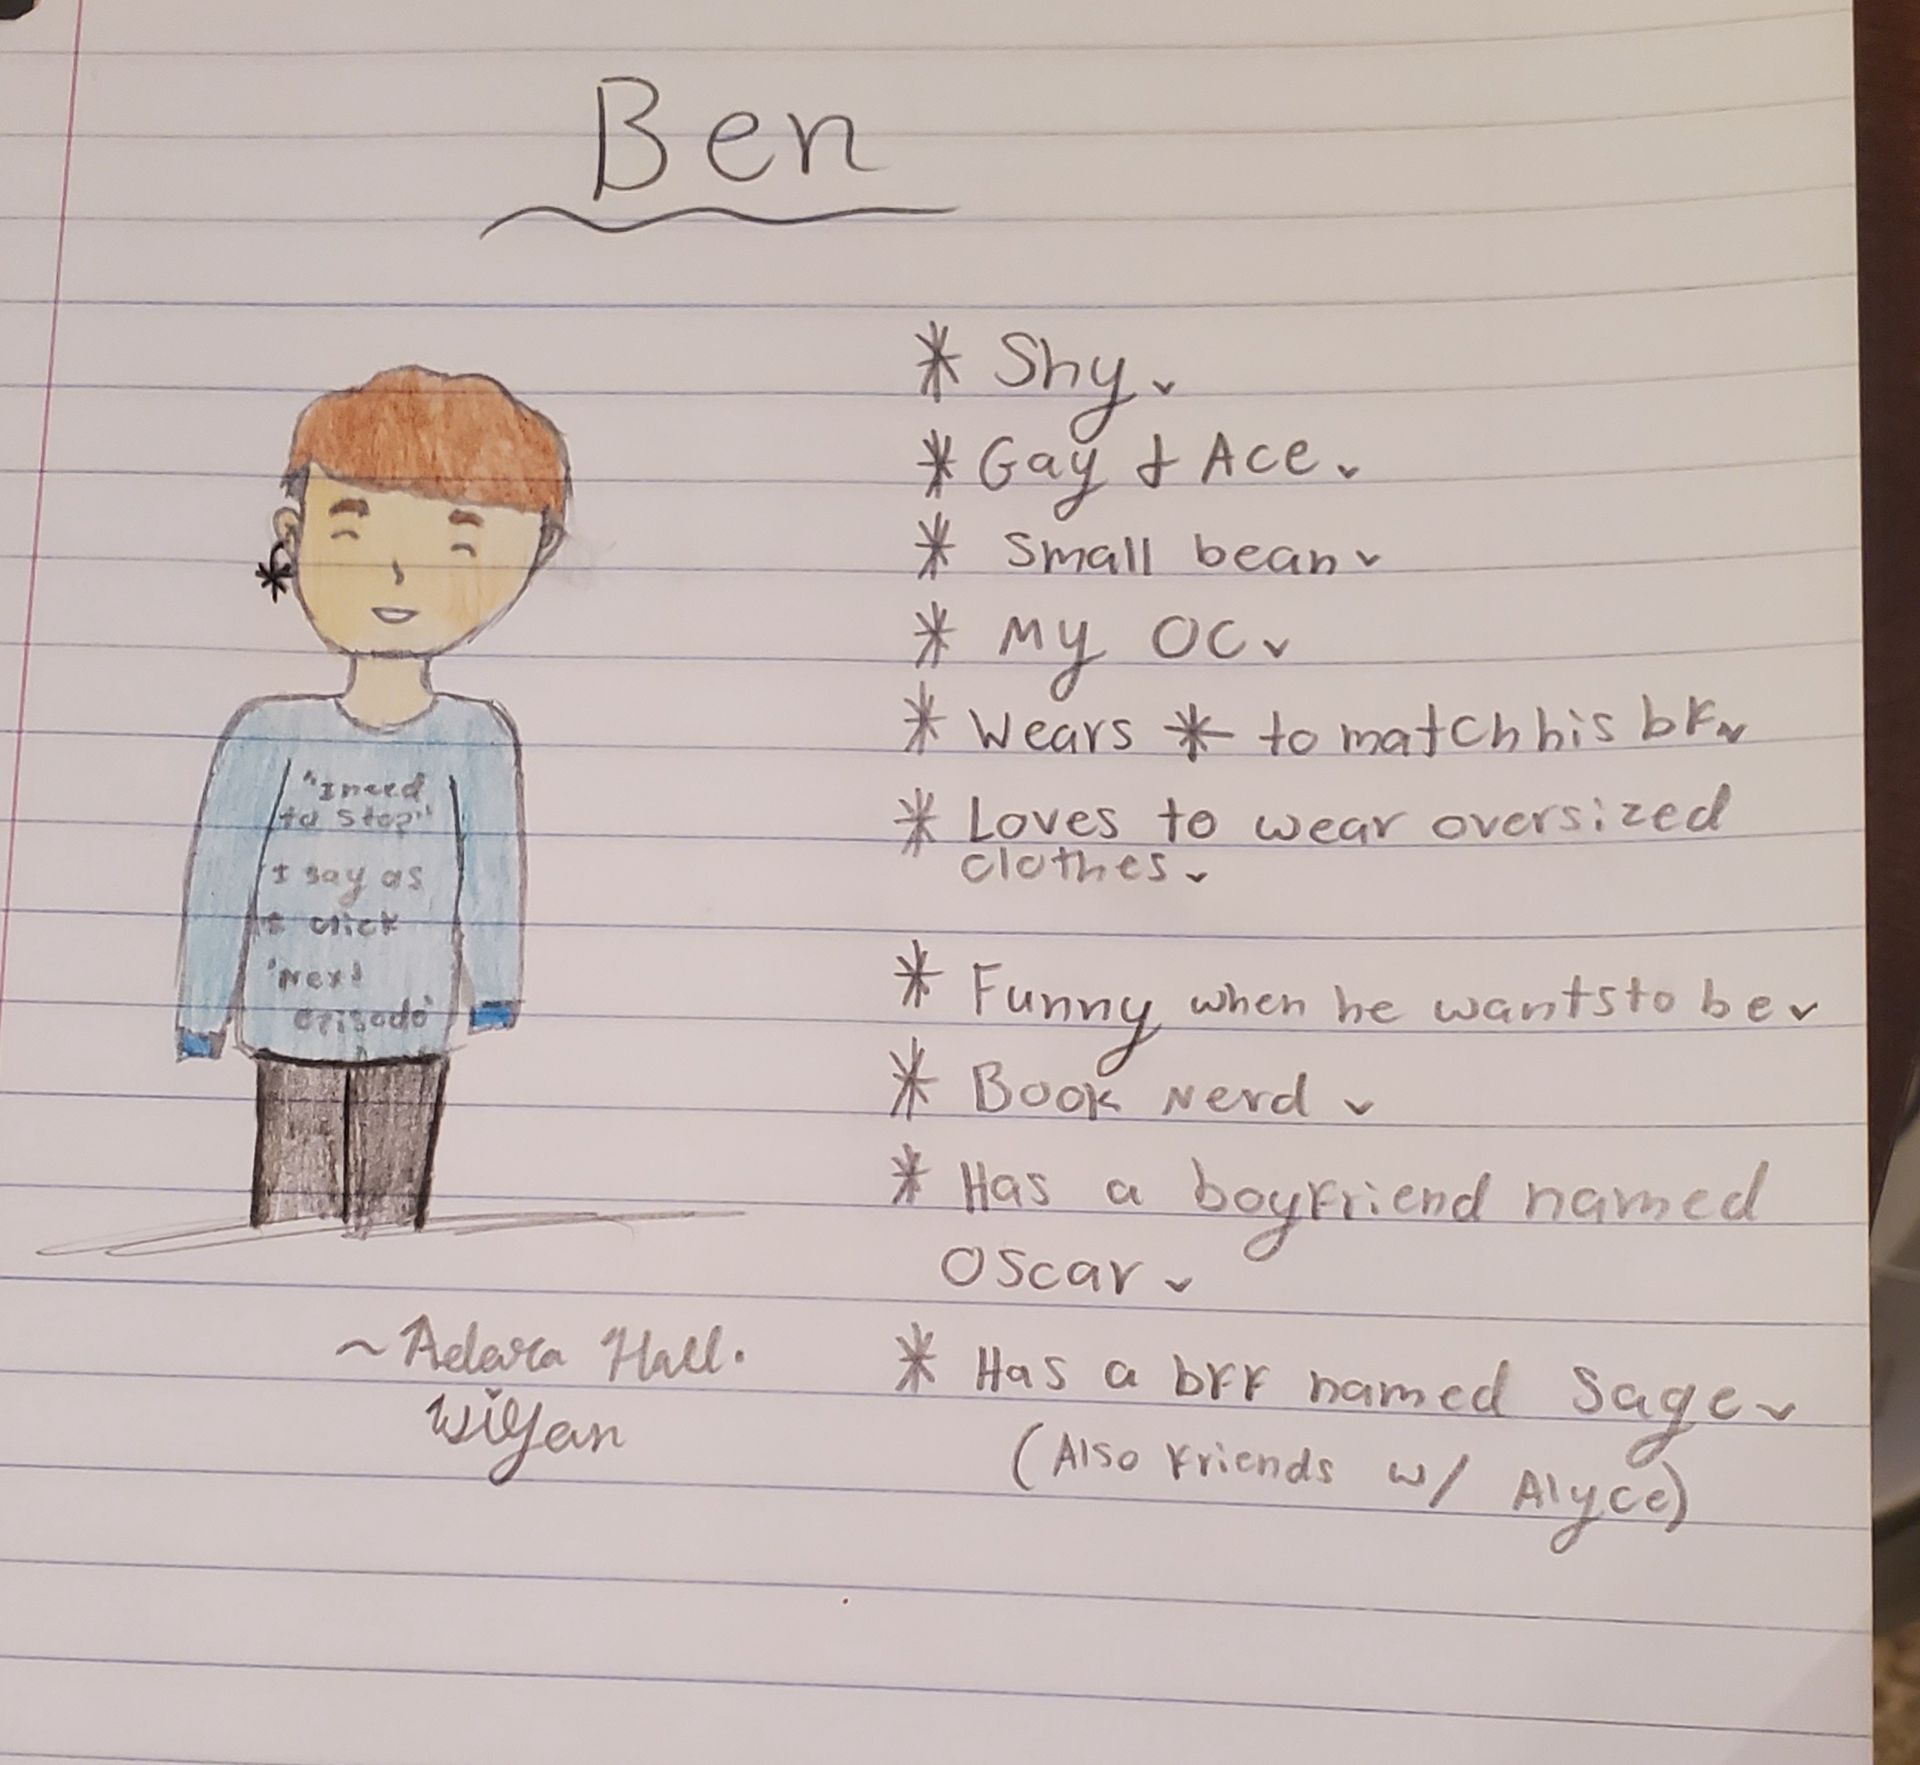 Ben
* Shy
* Gay & Ace
* Small bean
* My OC
* Wears * to match his bf
* Loves to wear oversized
clothes
* Funny when he wants to be
* Book Nerd
* Has a boyfriend named
Oscar
* Has a bff named Sage
(Also friends w/ Alyce)
"I need
to stop"
I say as
I click
'Next
episode'
~Adara Hall.